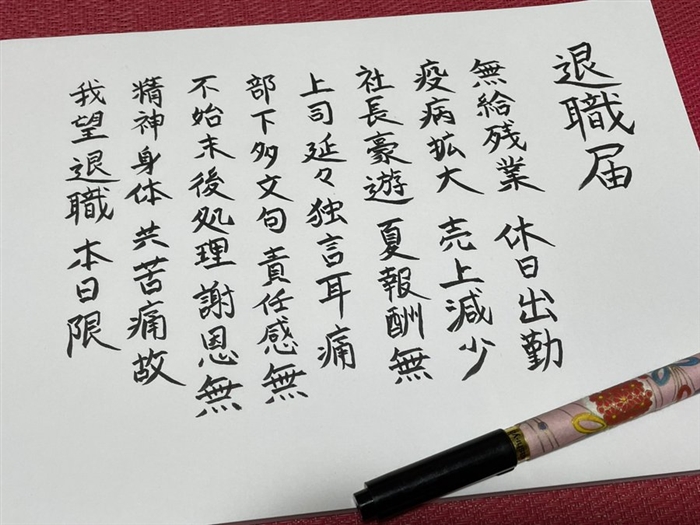 退職届
無給残業 休日出勤
疫病拡大 売上減少
社長豪遊 夏報酬無
上司延々独言耳痛
部下多文句責任感無
不始末後処理謝恩無
精神身体共苦痛故
我望退職本日限